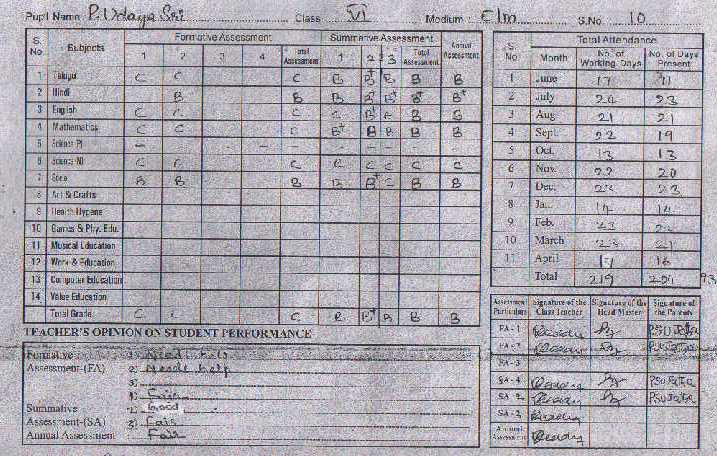 Pupil Name P. Udaya Sri Class VI Medium : E/m S.No. 10
S. No Subjects Formative Assessment Summative Assessment Annual Assessment
1 2 3 4 Total Assessment 1 2 3 Total Assessment
1 Telugu C C C B B+ B B B
2 Hindi B B B B+ B+ B+ B+
3 English C C C C B+ B B B
4 Mathematics C C C B+ B B B B
5 Science PS — — — — — — — —
6 Science NS C C C C C C C C
7 Social B B B B B+ C B B
8 Art & Crafts
9 Health Hygene
10 Games & Phy. Edu.
11 Musical Education
12 Work & Education
13 Computer Education
14 Value Education
Total Grade C C C B B+ B B B
S. No Month Total Attendance
No. of Working Days No. of Days Present
1 June 17
2 July 24 23
3 Aug 21 21
4 Sept. 22 19
5 Oct. 13 13
6 Nov. 22 20
7 Dec. 23
8 Jan. 14 14
9 Feb. 23
10 March 23 21
11 April 17 16
Total 219 204 93
TEACHER'S OPINION ON STUDENT PERFORMANCE
Formative 1) Need help
Assessment-(FA) 2) Needs help
3)
4) Fair
Summative 1) Good
Assessment-(SA) 2) Fair
Annual Assessment Fair
Assessment Particulars Signature of the Class Teacher Signature of the Head Master Signature of the Parents
FA - 1
FA - 2
FA - 3
SA - 1
SA - 2
SA - 3
Annual Assessment